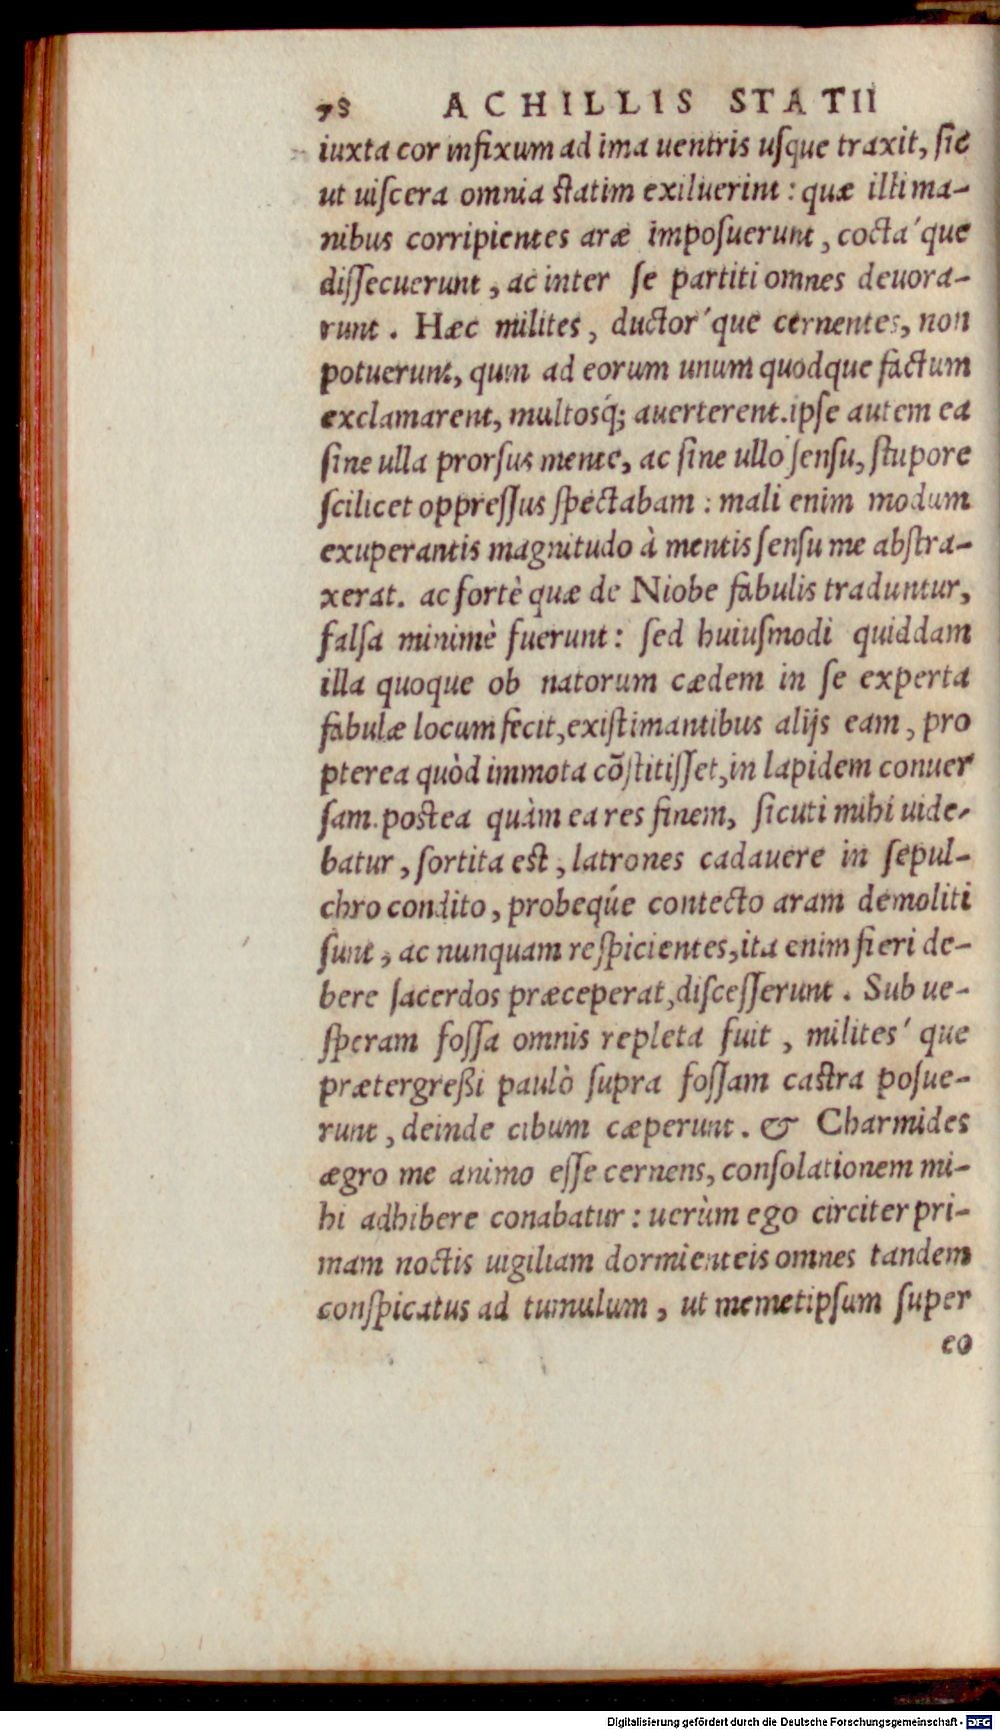 78 ACHILLIS STATII
iuxta cor infixum ad ima uentris uſque traxit, ſic
ut uiſcera omnia ſtatim exiluerint : quæ illi ma-
nibus corripientes aræ impoſuerunt, cocta'que
diſſecuerunt, ac inter ſe partiti omnes deuora-
runt. Hæc milites, ductor'que cernentes, non
potuerunt, quin ad eorum unum quodque factum
exclamarent, multosq́; auerterent. ipſe autem ea
ſine ulla prorſus mente, ac ſine ullo ſenſu, ſtupore
ſcilicet oppreſſus ſpectabam : mali enim modum
exuperantis magnitudo à mentis ſenſu me abſtra-
xerat. ac fortè quæ de Niobe fabulis traduntur,
falſa minimè fuerunt: ſed huiuſmodi quiddam
illa quoque ob natorum cædem in ſe experta
fabulæ locum fecit, exiſtimantibus alijs eam, pro
pterea quòd immota cōſtitiſſet, in lapidem conuer
ſam. poſtea quàm ea res finem, ſicuti mihi uide-
batur, ſortita eſt, latrones cadauere in ſepul-
chro condito, probeqúe contecto aram demoliti
ſunt, ac nunquam reſpicientes, ita enim fieri de-
bere ſacerdos præceperat, diſceſſerunt. Sub ue-
ſperam foſſa omnis repleta fuit, milites'que
prætergreßi paulò ſupra foſſam caſtra poſue-
runt, deinde cibum cæperunt. & Charmides
ægro me animo eſſe cernens, conſolationem mi-
hi adhibere conabatur : uerùm ego circiter pri-
mam noctis uigiliam dormienteis omnes tandem
conſpicatus ad tumulum, ut memetipſum ſuper
eo
Digitalisierung gefördert durch die Deutsche Forschungsgemeinschaft - DFG